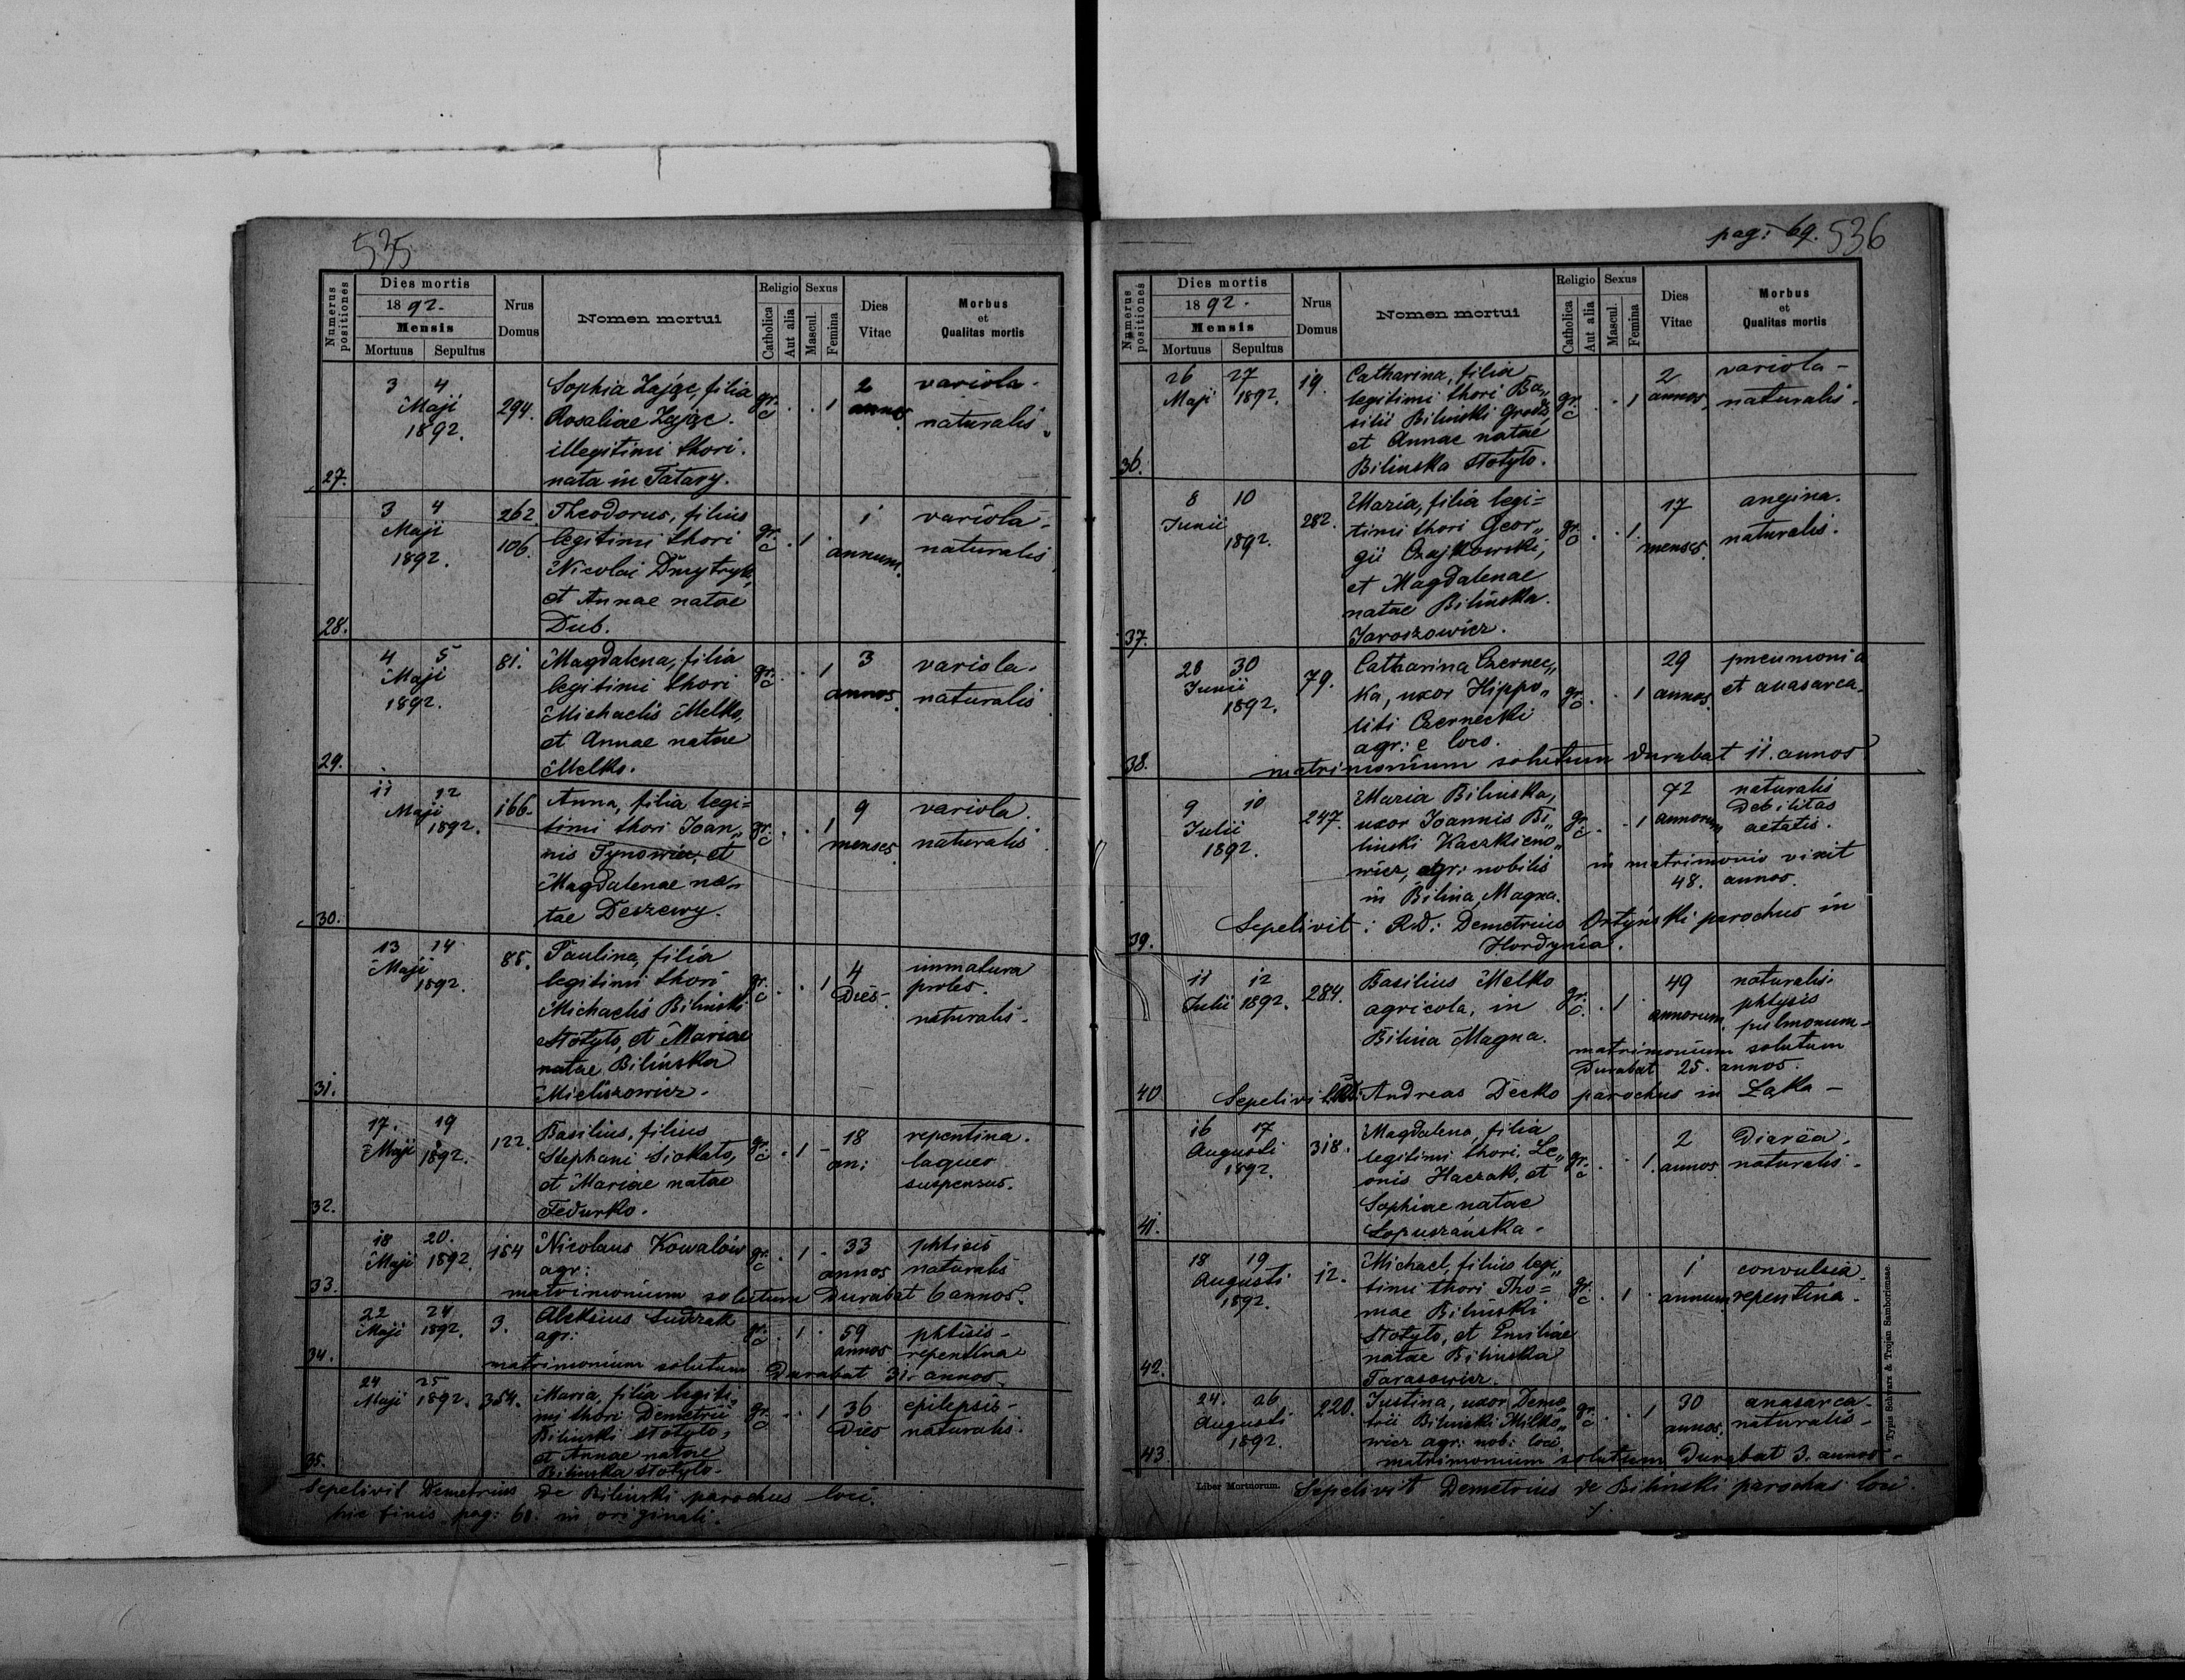 535
Numerus positiones
Dies mortis
1892.
Mensis
Mortuus Sepultus
Nrus Domus
Nomen mortui
Religio
Catholica
Aut alia
Sexus
Mascul.
Femina
Dies Vitae
Morbus et Qualitas mortis
27. 3 4 Maji 1892. 294. gr. c . . 1 2 annos variola. naturalis.
Sophia Zając, filia
Rosaliae Zając.
illegitimi thori.
nata in Tatary.
28. 3 4 Maji 1892. 262. 106. gr. c . 1 . 1 annum. variola. naturalis.
Theodorus, filius
legitimi thori
Nicolai Dmytryk,
et Annae natae
Dub.
29. 4 5 Maji 1892. 81. gr. c . . 1 3 annos. variola. naturalis
Magdalena, filia
legitimi thori
Michaelis Melko,
et Annae natae
Melko.
30. 11 12 Maji 1892. 166. gr. c . . 1 9 menses. variola. naturalis
Anna, filia legi=
timi thori Joan„
nis Tynowicz, et
Magdalenae na„
tae Deszewy.
31. 13 14 Maji 1892. 85. gr. c . . 1 4 Dies. immatura proles. naturalis.
Paulina, filia
legitimi thori
Michaelis Bilinski
Stotyto, et Mariae
natae Bilińska
Micliszowicz.
32. 17. 19 Maji 1892. 122. gr. c . 1 - 18 an: repentina. laqueo suspensus.
Basilius, filius
Stephani Siokato,
et Mariae natae
Fedurko.
33. 18 20. Maji 1892. 154 gr. c . 1 . 33 annos phtisis naturalis
Nicolaus Kowalów
agr:
matrimonium solutum Durabat 6 annos.
34. 22 24 Maji 1892. 3. gr. c . 1 . 59 annos phtisis - repentina
Aleksius Sudzak
agr:
matrimonium solutum Durabat 31. annos.
35. 24 25 Maji 1892. 354. gr. c . . 1 36 Dies epilepsis - naturalis.
Maria, filia legiti„
mi thori Demetrii
Bilinski Stotyto,
et Annae natae
Bilinska Stotyto.
Sepelivit Demetrius de Bilinski parochus loci.
hic finis pag: 68. in originali.
pag: 69. 536
Numerus positiones
Dies mortis
1892.
Mensis
Mortuus Sepultus
Nrus Domus
Nomen mortui
Religio
Catholica
Aut alia
Sexus
Mascul.
Femina
Dies Vitae
Morbus et Qualitas mortis
36. 26 27 Maji 1892. 19. gr. c . . 1 2 annos. variola - naturalis.
Catharina, filia
legitimi thori Ba„
silii Bilinski Grodz,
et Annae natae
Bilinska Stotyto.
37. 8 10 Junii 1892. 282. gr. c . . 1. 17 menses. angina. naturalis.
Maria, filia legi=
timi thori Geor„
gii Czajkowski,
et Magdalenae
natae Bilińska.
Jaroszowicz.
38. 28 30 Junii 1892. 79. gr. c . . 1 29 annos. pneumonia et anasarca.
Catharina Czernec„
ka, uxor Hippo„
liti Czernecki
agr: e loco.
matrimonium solutum durabat 11. annos
39. 9 10 Julii 1892. 247. gr. c . . 1 72 annorum naturalis Debilitas aetatis.
Maria Bilinska,
uxor Joannis Bi„
linski Kaczkieno„
wicz, agr: nobilis
in Bilina Magna.
in matrimonio vixit
48. annos.
Sepelivit: Rd: Demetrius Ortyński parochus in
Hordynia.
40 11 12 Julii 1892. 284. gr. c. . 1 . 49 annorum. naturalis. phtysis pulmonum -
Basilius Melko
agricola, in
Bilina Magna.
matrimonium solutum
Durabat 25. annos.
Sepelivit Rd: Andreas Decko parochus in Łąka -
41. 16 17 Augusti 1892. 318. gr. c . . 1. 2 annos Diarea. naturalis.
Magdalena, filia
legitimi thori. Le„
onis Haczak, et
Sophiae natae
Łopuszańska.
42. 18 19 Augusti 1892. 12. gr. c . 1 . 1 annum convulsia. repentina.
Michael, filius legi„
timi thori Tho=
mae Bilinski
Stotyto, et Emiliae
natae Bilinska
Tarasowicz.
43. 24. 26 Augusti 1892. 220. gr. c . . 1 30 annos. anasarca - naturalis -
Justina, uxor Deme„
trii Bilinski Milko„
wicz agr: nob: loci.
matrimonium solutum Durabat 3. annos -
Liber Mortuorum.
Sepelivit Demetrius de Bilinski parochus loci.
Typis Schwarz & Trojan Samborinsae.